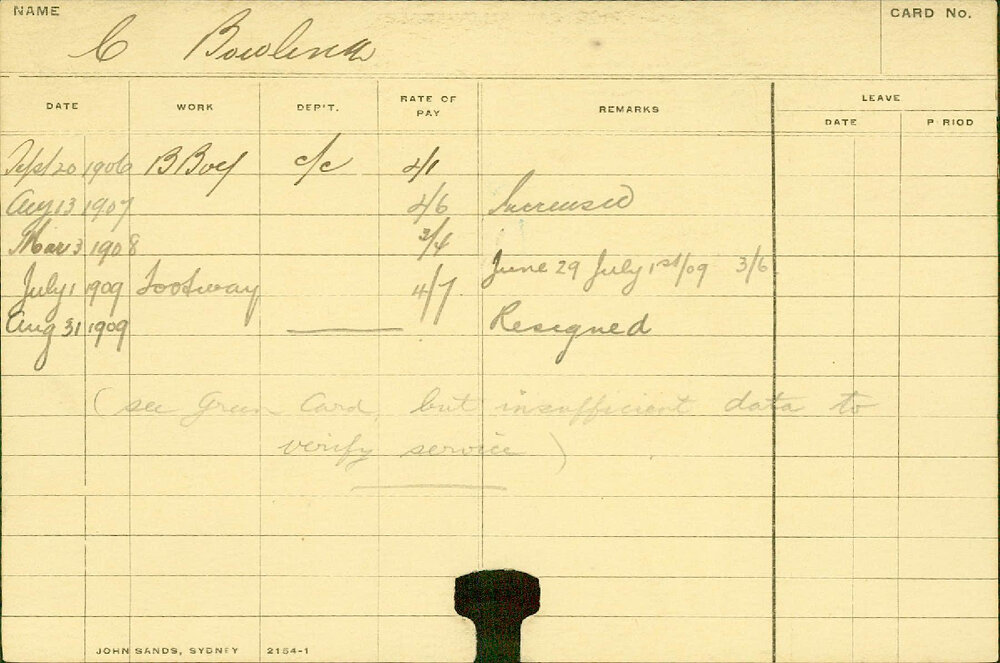 NAME
CARD No.
C Bowling
DATE WORK DEP'T. RATE OF PAY REMARKS LEAVE
DATE P RIOD
Sept 20 1906 B Boy c/c 2/1
Aug 13 1907 2/6 Increased
Mar 3 1908 3/4
June 29 July 1st/09 3/6
July 1 1909 Footway 4/7
Aug 31 1909 Resigned
(see Green Card, but insufficient data to
verify service)
JOHN SANDS, SYDNEY 2154-1